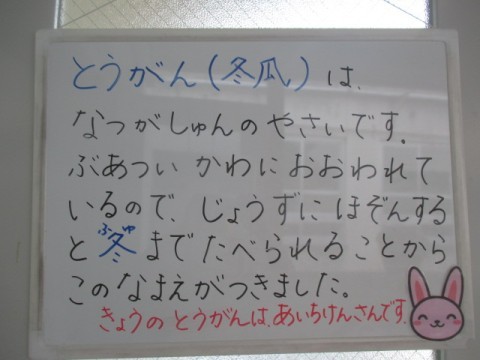 とうがん(冬瓜)は、
なつがしゅんのやさいです。
ぶあついかわにおおわれて
いるので、じょうずにほぞんする
と冬(ふゆ)までたべられることから
このなまえがつきました。
きょうのとうがんは、あいちけんさんです。